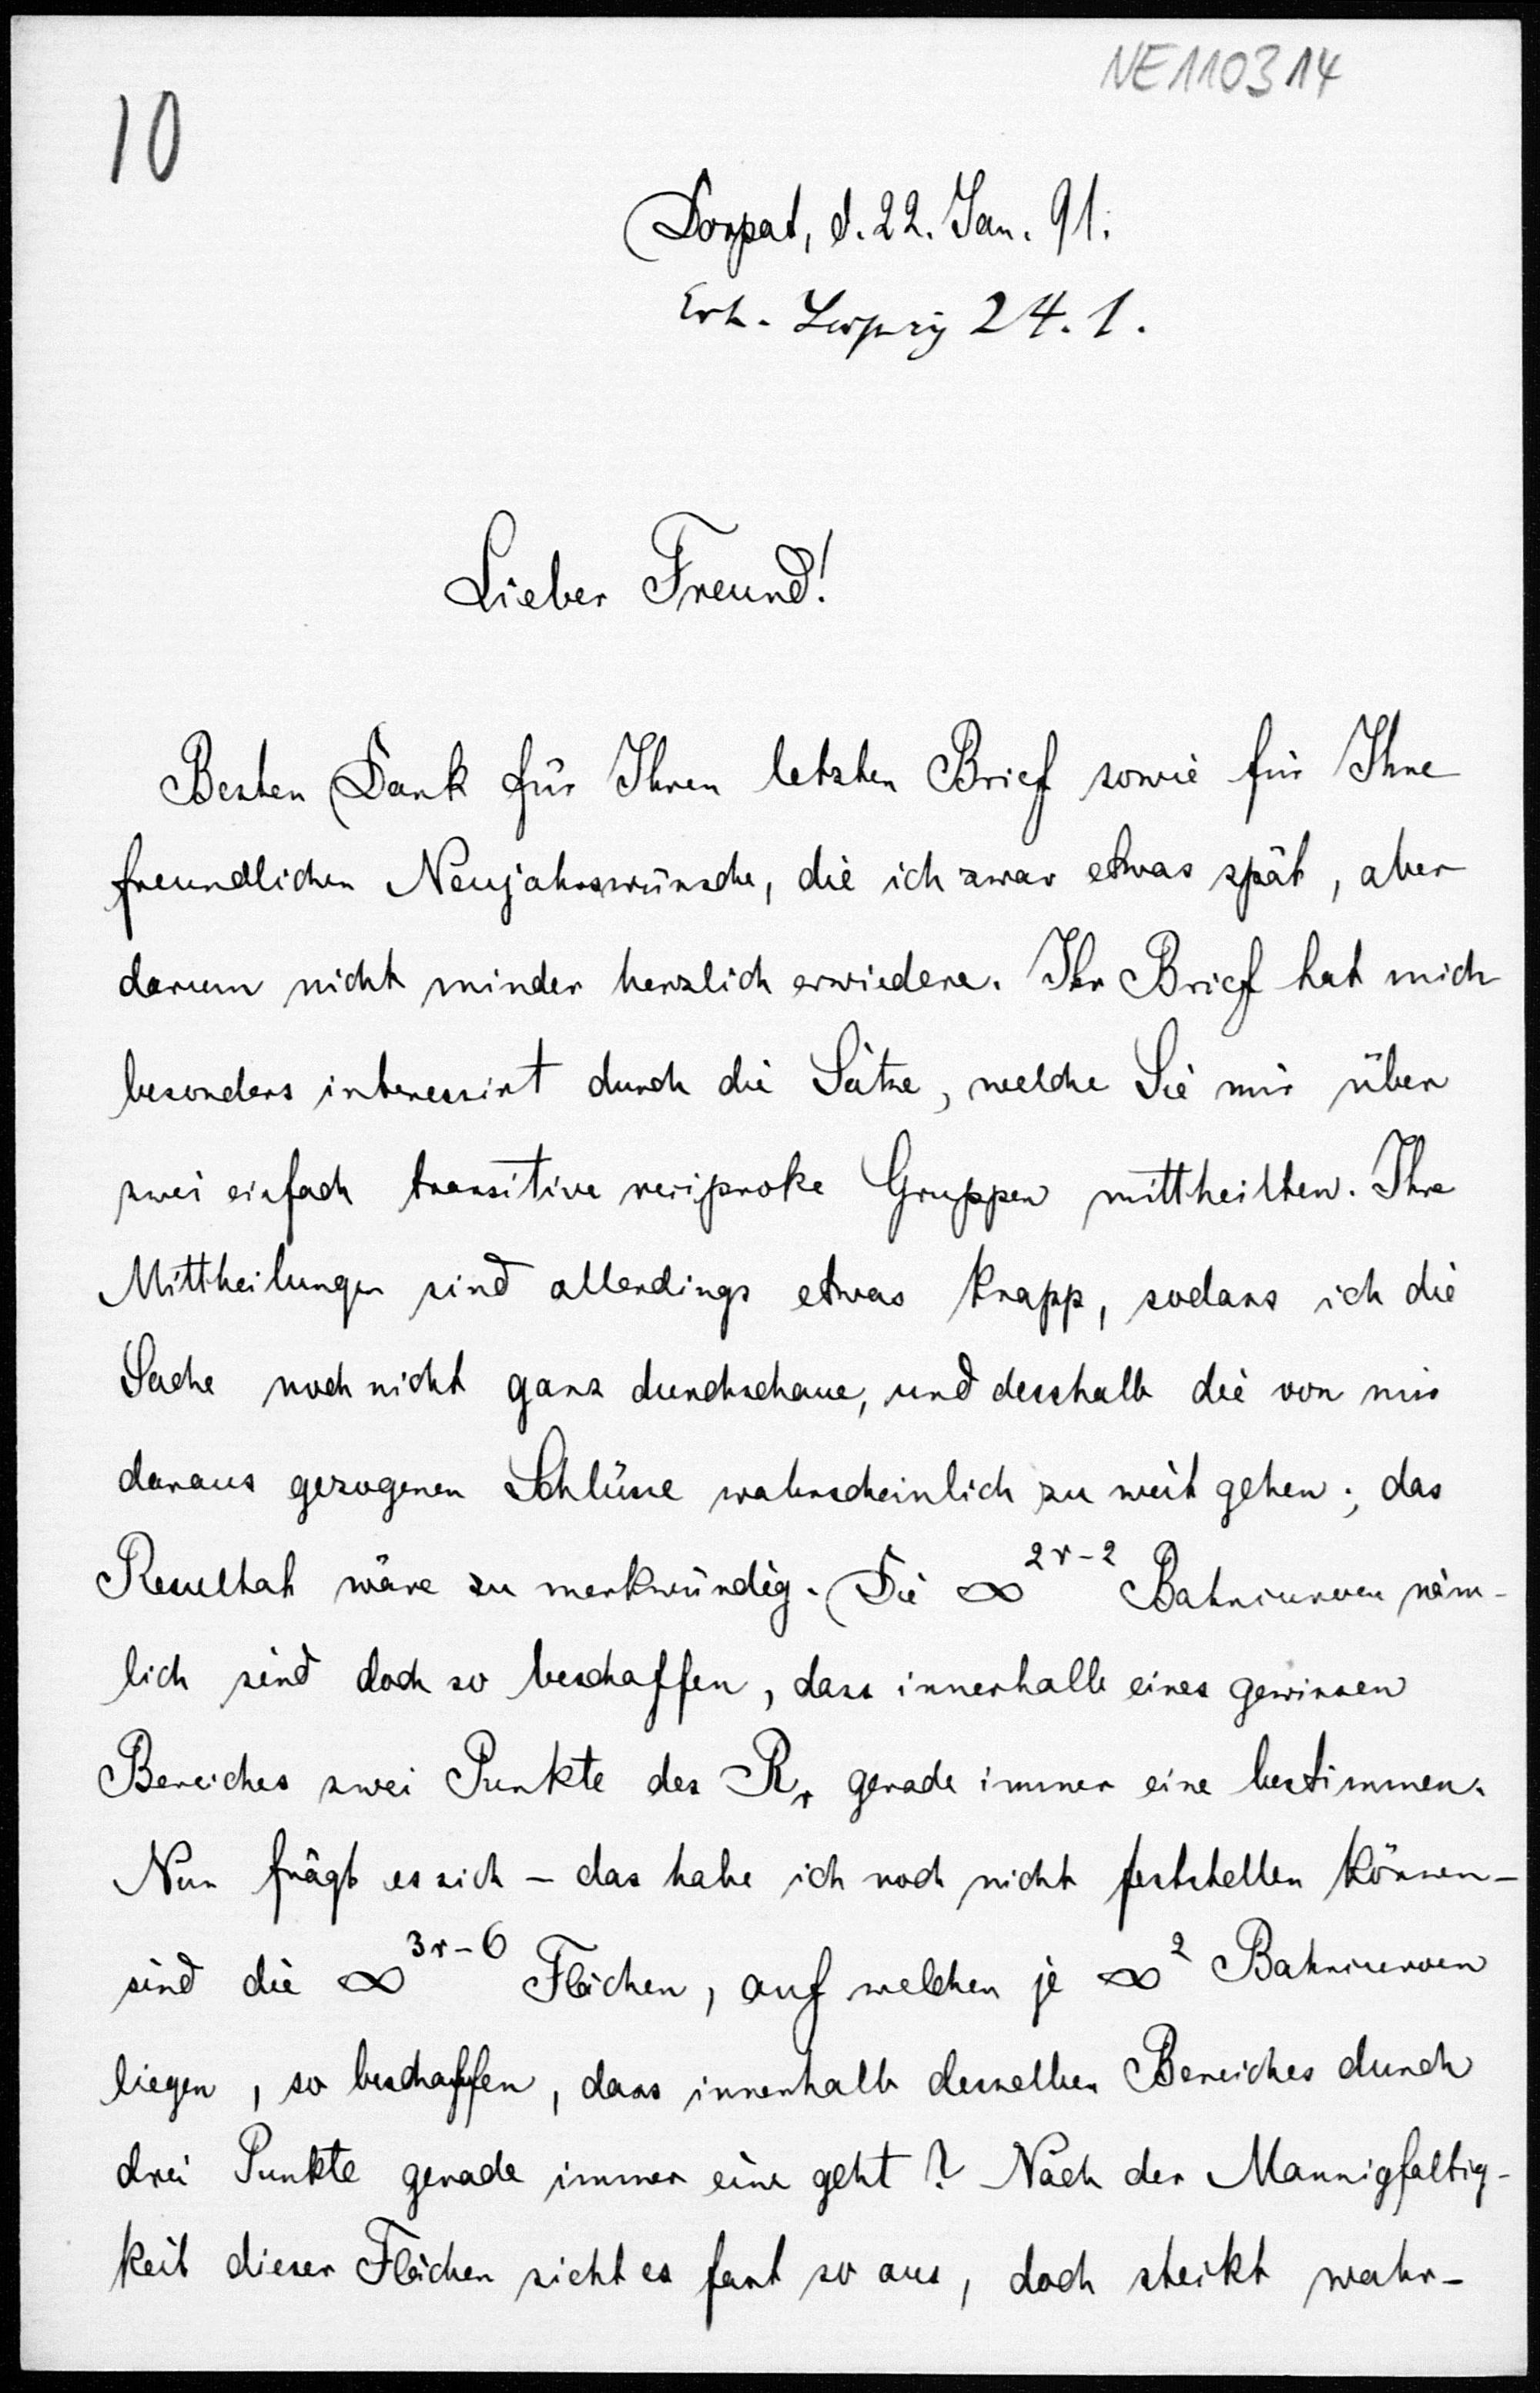 NE110314
10
Dorpat, d. 22. Jan. 91.
Erh. Leipzig 24. 1.
Lieber Freund!
Besten Dank für Ihren letzten Brief sowie für Ihre
freundlichen Neujahrswünsche, die ich zwar etwas spät, aber
darum nicht minder herzlich erwiedere. Ihr Brief hat mich
besonders interessirt durch die Sätze, welche Sie mir über
zwei einfach transitive reciproke Gruppen mittheilten. Ihre
Mittheilungen sind allerdings etwas knapp, sodass ich die
Sache noch nicht ganz durchschaue, und desshalb die von mir
daraus gezogenen Schlüsse wahrscheinlich zu weit gehen; das
Resultat wäre zu merkwürdig. Die ∞^{2r-2} Bahncurven näm-
lich sind doch so beschaffen, dass innerhalb eines gewissen
Bereiches zwei Punkte des R_r gerade immer eine bestimmen.
Nun frägt es sich – das habe ich noch nicht feststellen können –
sind die ∞^{3r-6} Flächen, auf welchen je ∞^2 Bahncurven
liegen, so beschaffen, dass innerhalb desselben Bereiches durch
drei Punkte gerade immer eine geht? Nach der Mannigfaltig-
keit dieser Flächen sieht es fast so aus, doch steckt wahr-